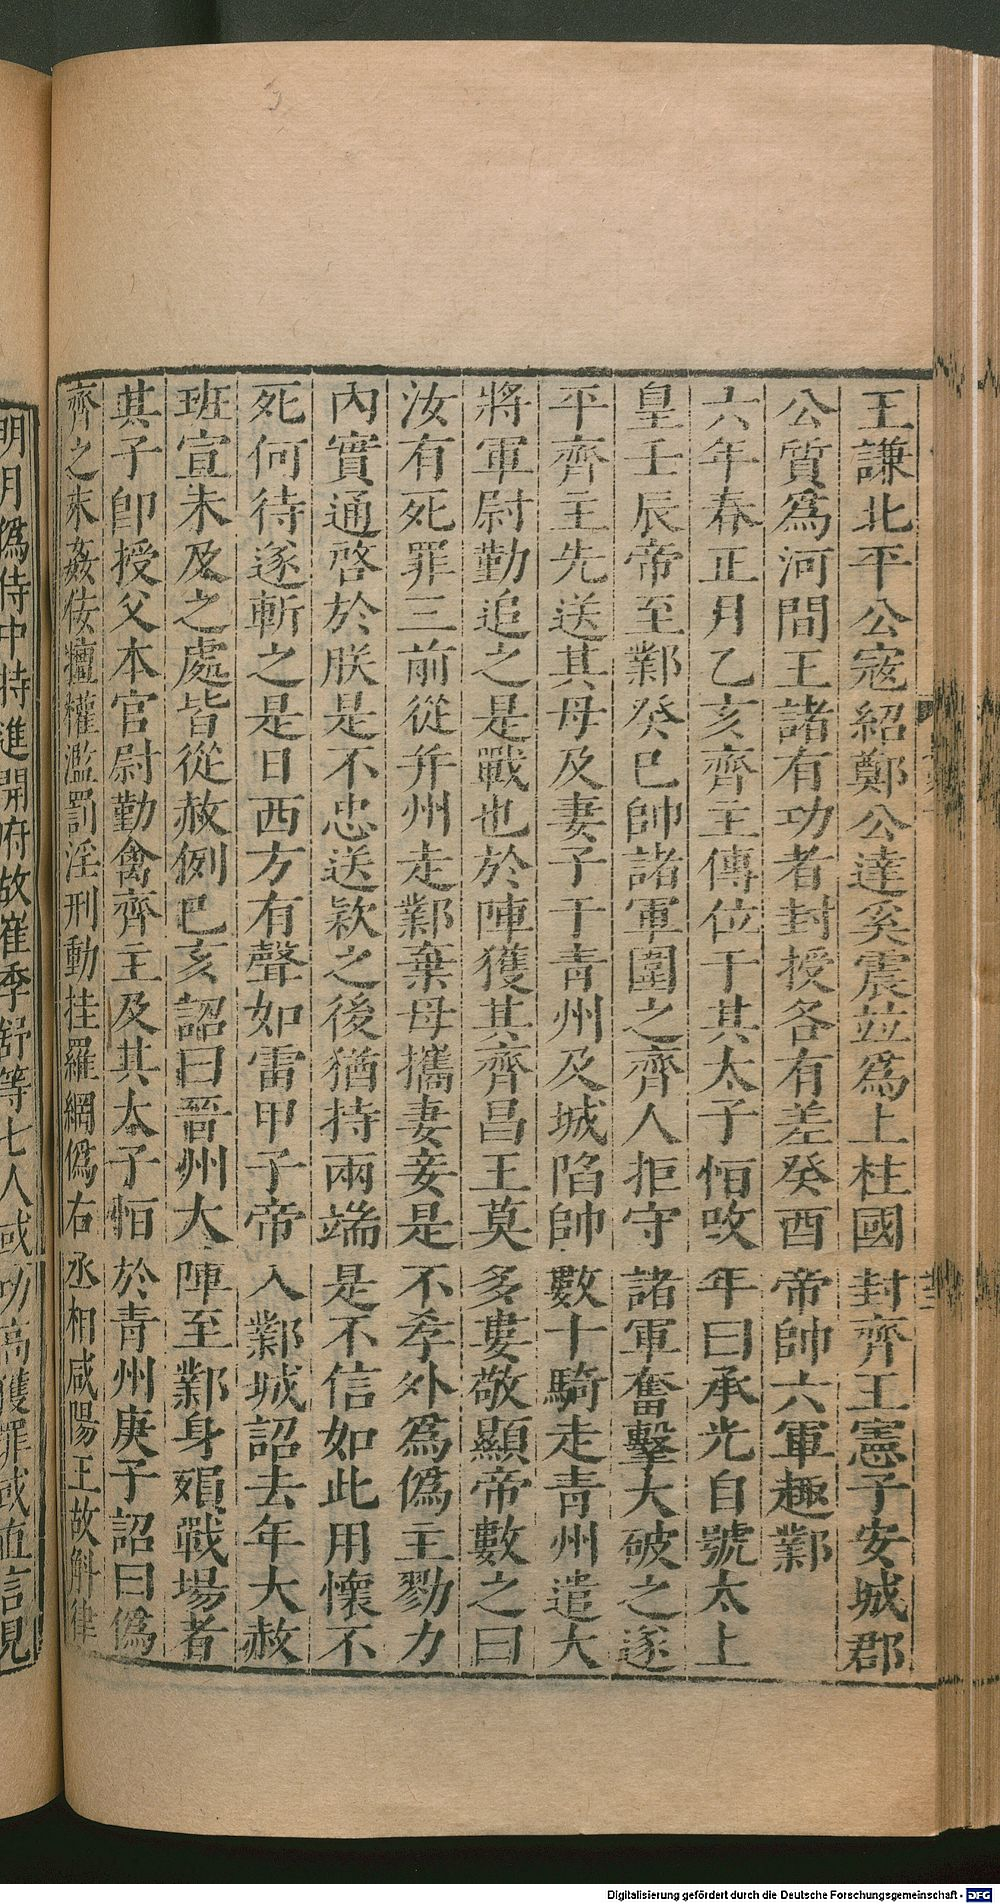 王謙北平公寇紹鄭公達奚震並爲上柱國封齊王憲子安城郡
公質爲河間王諸有功者封授各有差癸酉帝帥六軍趣鄴
六年春正月乙亥齊主傳位于其太子恒改年曰承光自號太上
皇壬辰帝至鄴癸巳帥諸軍圍之齊人拒守諸軍奮擊大破之遂
平齊主先送其母及妻子于青州及城陷帥數十騎走青州遣大
將軍尉勤追之是戰也於陣獲其齊昌王莫多婁敬顯帝數之曰
汝有死罪三前從幷州走鄴棄母攜妻妾是不孝外爲僞主勠力
內實通啓於朕是不忠送欵之後猶持兩端是不信如此用懷不
死何待遂斬之是日西方有聲如雷甲子帝入鄴城詔去年大赦
班宣未及之處皆從赦例已亥詔曰晉州大陣至鄴身殞戰場者
其子卽授父本官尉勤禽齊主及其太子恒於青州庚子詔曰僞
齊之末姦佞擅權濫罰淫刑動挂羅網僞右丞相咸陽王故斛律
明月僞侍中特進開府故崔季舒等七人或功高獲罪或直言見
Digitalisierung gefördert durch die Deutsche Forschungsgemeinschaft - DFG